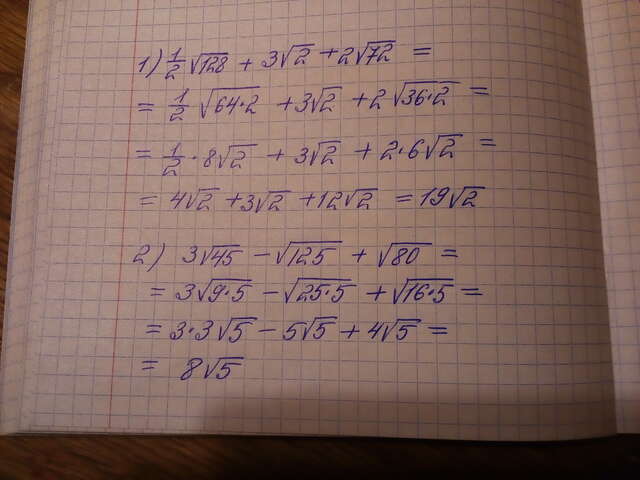 1) 1/2 √128 + 3√2 + 2√72 =
= 1/2 √64·2 + 3√2 + 2√36·2 =
= 1/2 · 8√2 + 3√2 + 2·6√2 =
= 4√2 + 3√2 + 12√2 = 19√2
2) 3√45 - √125 + √80 =
= 3√9·5 - √25·5 + √16·5 =
= 3·3√5 - 5√5 + 4√5 =
= 8√5